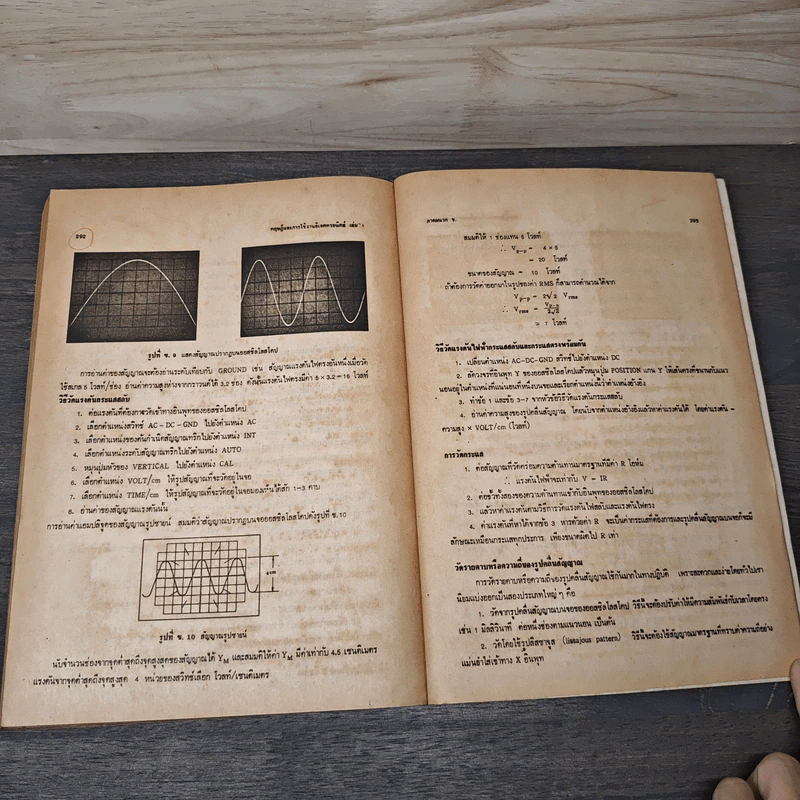 292
ทฤษฎีและการใช้งานอิเลคทรอนิคส์ เล่ม 1
รูปที่ ข. 9 แสดงสัญญาณปรากฏบนออสซิลโลสโคป
การอ่านค่าของสัญญาณจะต้องอ่านระดับเทียบกับ GROUND เช่น สัญญาณแรงดันไฟตรงอันหนึ่งเมื่อวัด
ใช้สเกล 5 โวลท์/ช่อง อ่านค่าความสูงห่างจากกราวนด์ได้ 3.2 ช่อง ดังนั้นแรงดันไฟตรงมีค่า 5 × 3.2 = 16 โวลท์
วิธีวัดแรงดันกระแสสลับ
1. ต่อแรงดันที่ต้องการวัดเข้าทางอินพุทของออสซิลโลสโคป
2. เลือกตำแหน่งสวิทซ์ AC - DC - GND ไปยังตำแหน่ง AC
3. เลือกตำแหน่งของต้นกำเนิดสัญญาณทริกไปยังตำแหน่ง INT
4. เลือกตำแหน่งระดับสัญญาณทริกไปยังตำแหน่ง AUTO
5. หมุนปุ่มหัวของ VERTICAL ไปยังตำแหน่ง CAL
6. เลือกตำแหน่ง VOLT/cm ให้รูปสัญญาณที่จะวัดอยู่ในจอ
7. เลือกตำแหน่ง TIME/cm ให้รูปสัญญาณที่จะวัดอยู่ในจอมองเห็นได้สัก 1-3 คาบ
8. อ่านค่าของสัญญาณแรงดันนั้น
การอ่านค่าแอมปลิจูดของสัญญาณรูปซายน์ สมมติว่าสัญญาณปรากฏบนจอออสซิลโลสโคปดังรูปที่ ข.10
4 cm
รูปที่ ข. 10 สัญญาณรูปซายน์
นับจำนวนช่องจากจุดต่ำสุดถึงจุดสูงสุดของสัญญาณได้ Y_M และสมมติให้ค่า Y_M มีค่าเท่ากับ 4.5 เซนติเมตร
แรงดันจากจุดต่ำสุดถึงจุดสูงสุด 4 หน่วยของสวิทซ์เลือก โวลท์/เซนติเมตร
ภาคผนวก ข.
293
สมมติให้ 1 ช่องแทน 5 โวลท์
∴ V_p-p = 4 × 5
= 20 โวลท์
ขนาดของสัญญาณ = 10 โวลท์
ถ้าต้องการวัดค่าออกมาในรูปของค่า RMS ก็สามารถคำนวณได้จาก
V_p-p = 2√2 V_rms
∴ V_rms = V_p-p / 2√2
≅ 7 โวลท์
วิธีวัดแรงดันไฟฟ้ากระแสสลับและกระแสตรงพร้อมกัน
1. เปลี่ยนตำแหน่ง AC-DC-GND สวิทซ์ไปยังตำแหน่ง DC
2. ลัดวงจรที่อินพุท Y ของออสซิลโลสโคปแล้วหมุนปุ่ม POSITION แกน Y ให้เส้นตรงที่ขนานกับแนว
นอนอยู่ในตำแหน่งที่แน่นอนที่หนึ่งบนจอและเรียกตำแหน่งนี้ว่าตำแหน่งอ้างอิง
3. ทำข้อ 1 และข้อ 3-7 จากหัวข้อวิธีวัดแรงดันกระแสสลับ
4. อ่านค่าความสูงของรูปคลื่นสัญญาณ โดยนับจากตำแหน่งอ้างอิงแล้วหาค่าแรงดันได้ โดยค่าแรงดัน =
ความสูง × VOLT/cm (โวลท์)
การวัดกระแส
1. ต่อสัญญาณที่วัดคร่อมความต้านทานมาตรฐานที่มีค่า R โอห์ม
∴ แรงดันไฟฟ้าจะเท่ากับ V = IR
2. ต่อขั้วทั้งสองของความต้านทานเข้ากับอินพุทของออสซิลโลสโคป
3. แล้วหาค่าแรงดันตามวิธีการวัดแรงดันไฟสลับและแรงดันไฟตรง
4. ค่าแรงดันที่หาได้จากข้อ 3 หารด้วยค่า R จะเป็นค่ากระแสที่ต้องการและรูปคลื่นสัญญาณบนจอก็จะมี
ลักษณะเหมือนกระแสทุกประการ เพียงขนาดผิดไป R เท่า
วัดรายคาบหรือความถี่ของรูปคลื่นสัญญาณ
การวัดรายคาบหรือความถี่ของรูปคลื่นสัญญาณใช้กันมากในทางปฏิบัติ เพราะสะดวกและง่ายโดยทั่วไปเรา
นิยมแบ่งออกเป็นสองประเภทใหญ่ ๆ คือ
1. วัดจากรูปคลื่นสัญญาณบนจอของออสซิลโลสโคป วิธีนี้จะต้องปรับค่าให้มีความสัมพันธ์กับเวลาโดยตรง
เช่น 1 มิลลิวินาที ต่อหนึ่งช่องตามแนวนอน เป็นต้น
2. วัดโดยใช้รูปลิสซาจูส (lissajous pattern) วิธีนี้จะต้องใช้สัญญาณมาตรฐานที่ทราบค่าความถี่อย่าง
แม่นยำใส่เข้าทาง X อินพุท